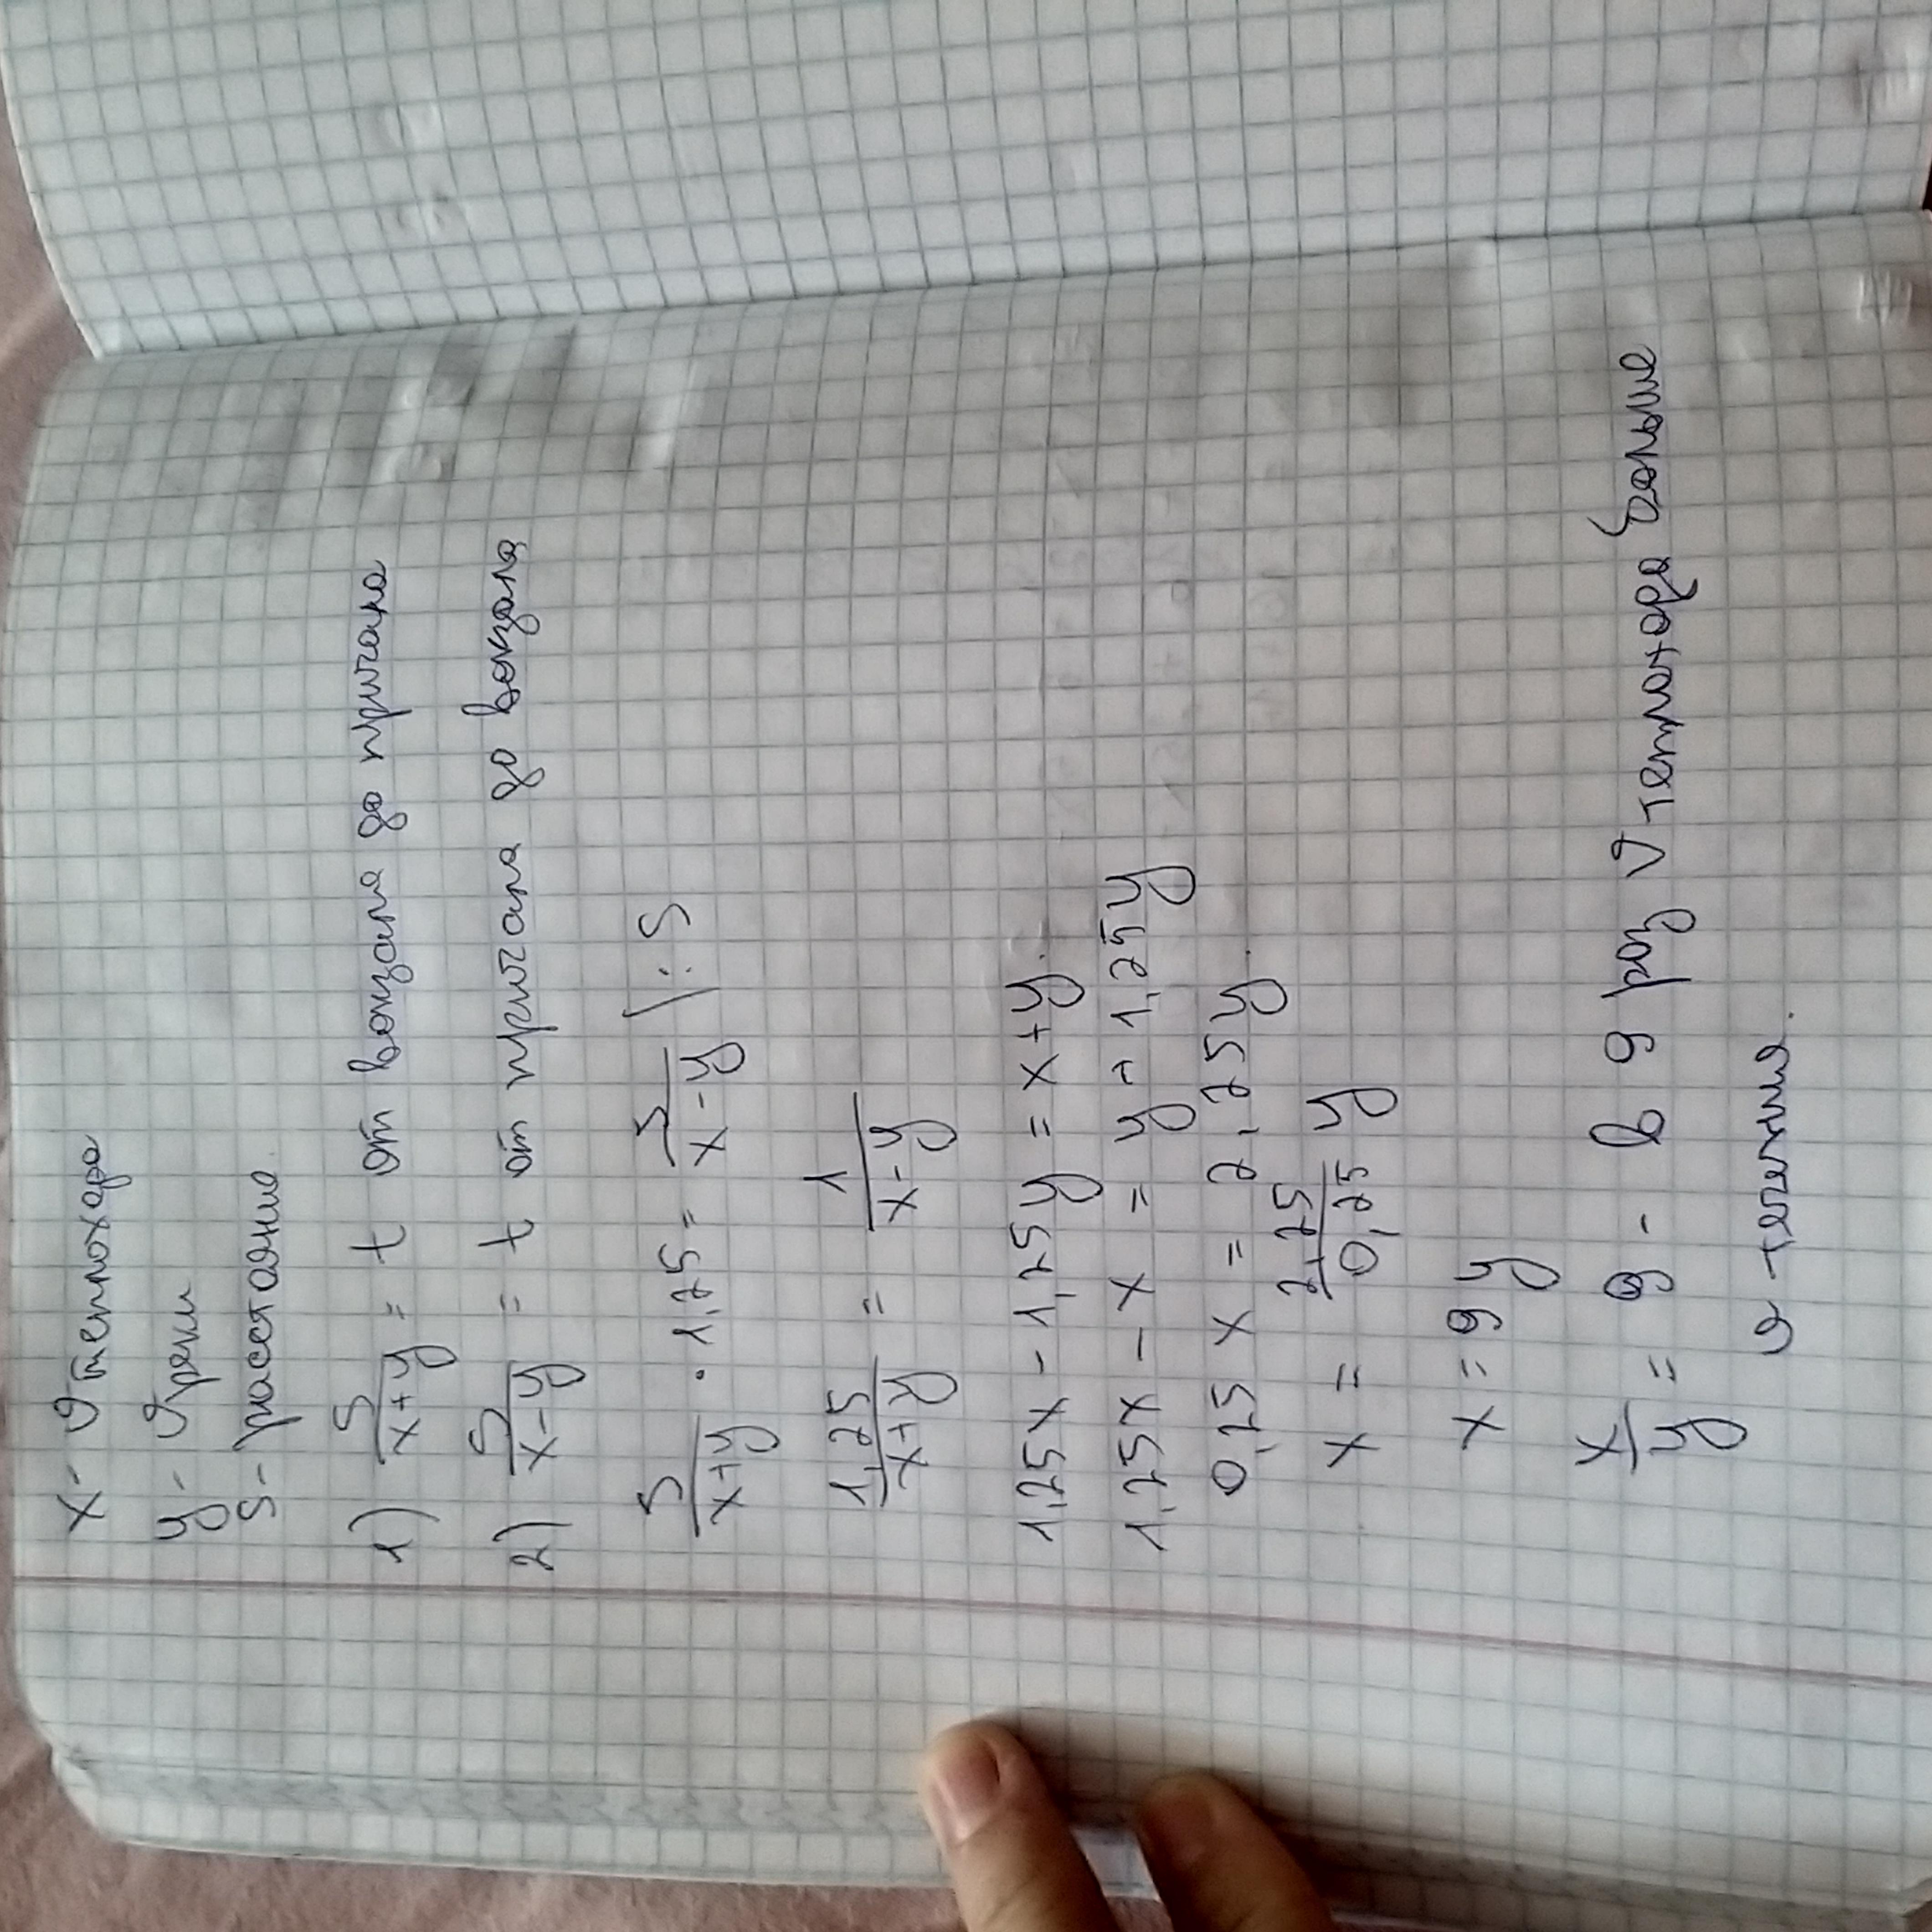 x - v теплохода
y - v реки
S - расстояние.
1) S/(x+y) = t от вокзала до причала
2) S/(x-y) = t от причала до вокзала
S/(x+y) · 1,25 = S/(x-y) |:S
1,25/(x+y) = 1/(x-y)
1,25x - 1,25y = x+y.
1,25x - x = y + 1,25y
0,25x = 2,25y.
x = 2,25/0,25 y
x = 9y
x/y = 9 - в 9 раз v теплохода больше
v течения.